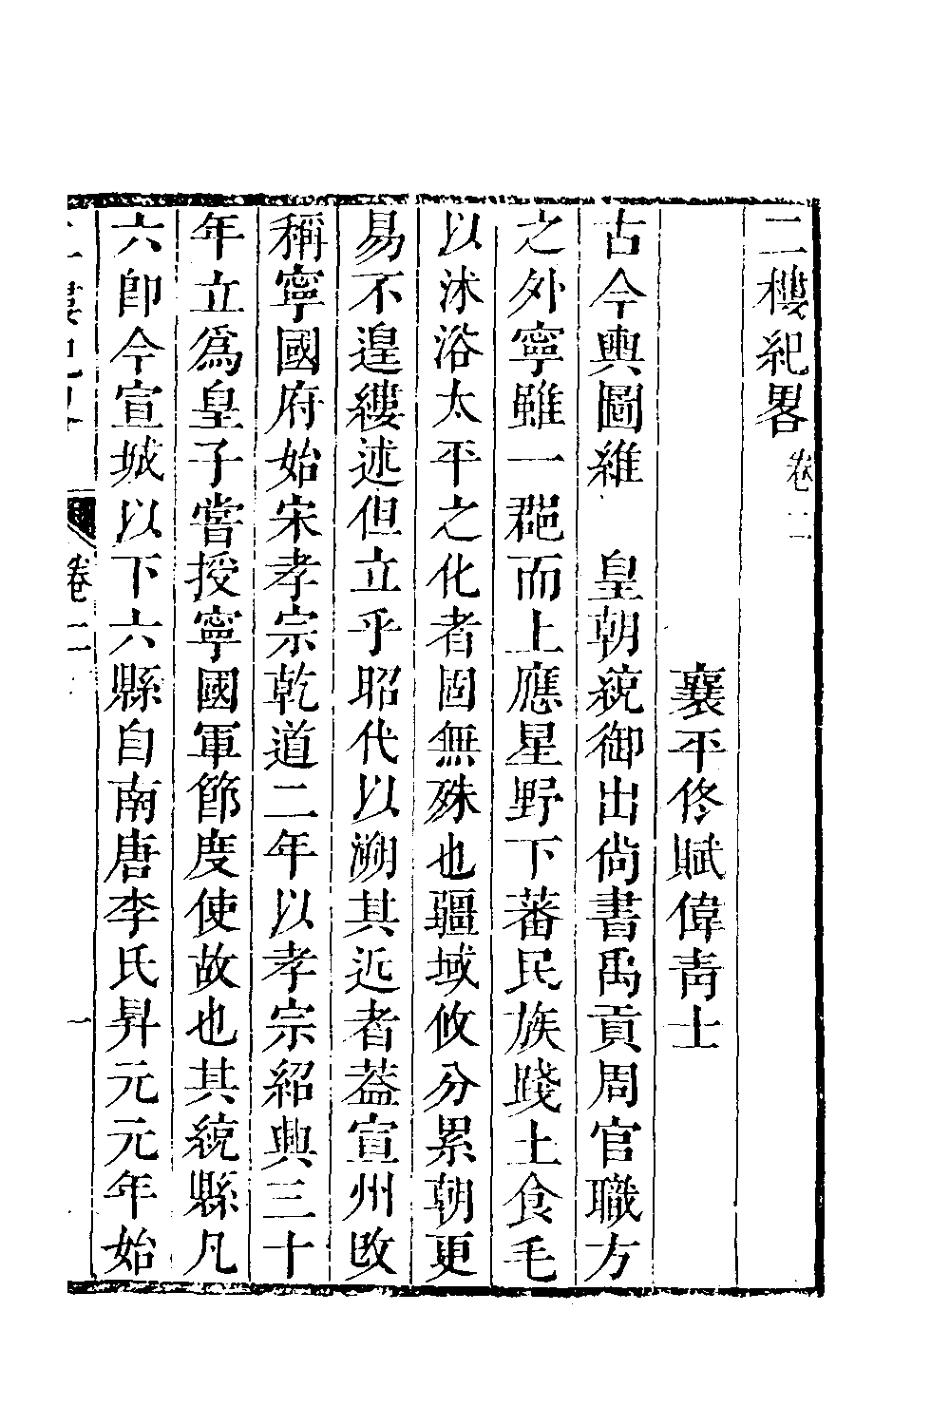 二樓紀畧 卷二
襄平佟賦偉青士
古今輿圖維 皇朝統御出尙書禹貢周官職方
之外寧雖一郡而上應星野下蕃民族踐土食毛
以沐浴太平之化者固無殊也疆域攸分累朝更
易不遑縷述但立乎昭代以溯其近者葢宣州改
稱寧國府始宋孝宗乾道二年以孝宗紹興三十
年立爲皇子嘗授寧國軍節度使故也其統縣凡
六卽今宣城以下六縣自南唐李氏昇元元年始
二樓紀畧 卷二 一